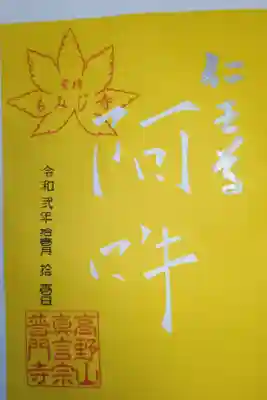 仁王尊
阿吽
もみじ寺
令和弐年拾壹月拾壹日
高野山
真言宗
普門寺